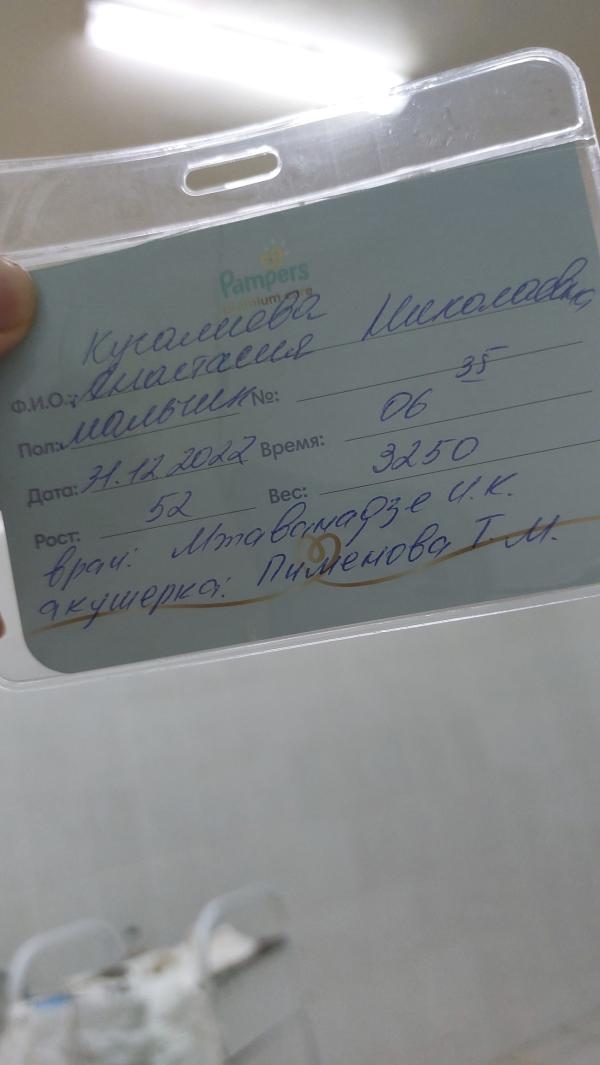 Pampers
premium care
Кугалиова
Ф.И.О.: Анастасия Николаевна
Пол: мальчик №:
Дата: 31.12.2022 Время: 06 35
Рост: 52 Вес: 3250
врач: Мжаванадзе И.К.
акушерка: Пименова Т.М.